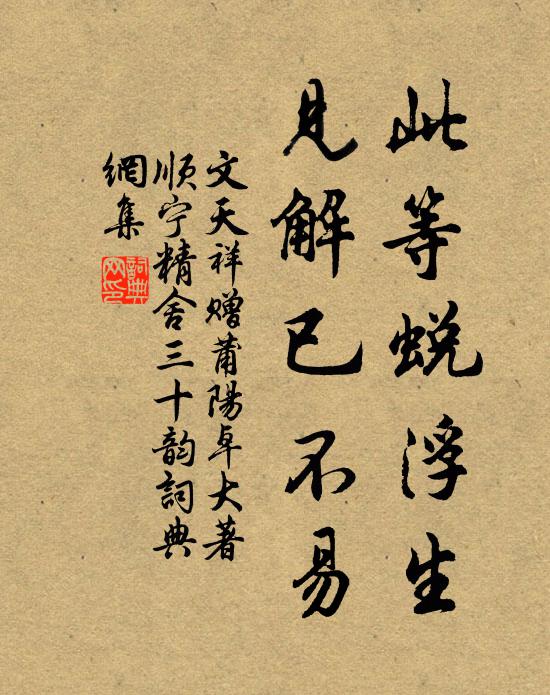 此等蜕浮生
見解已不易
文天祥赠莆陽卓大著
順宁精舍三十韵詞典
網集
詞典
网印